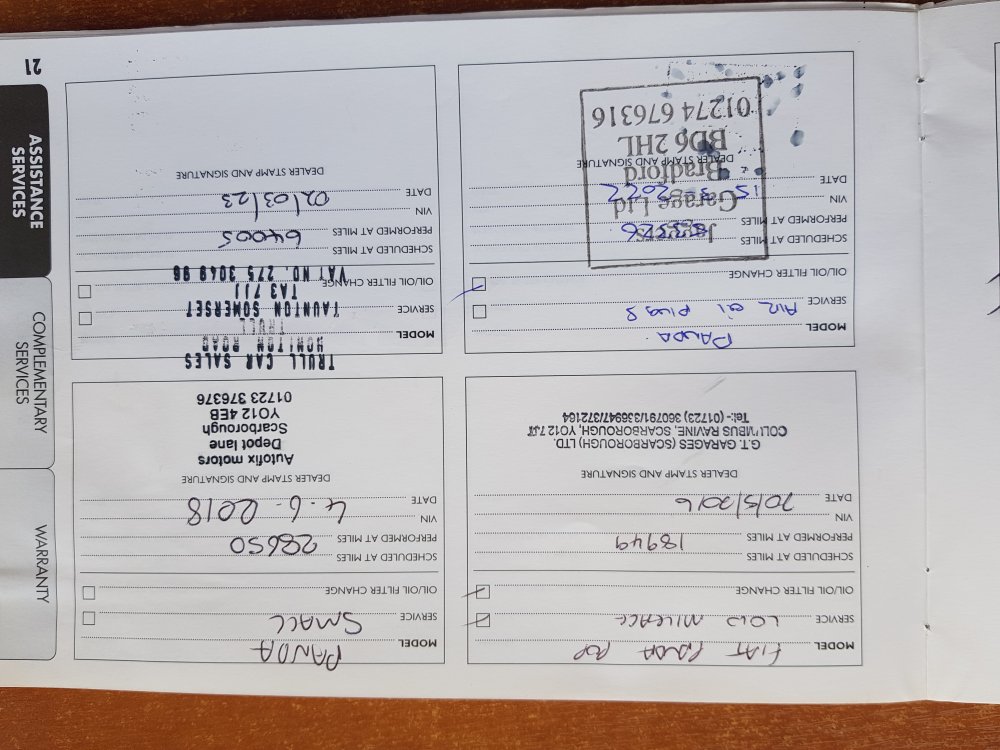 MODEL FIAT PANDA POP
SERVICE LOW MILEAGE
OIL/OIL FILTER CHANGE
SCHEDULED AT MILES
PERFORMED AT MILES 18949
VIN
DATE 20/5/2016
DEALER STAMP AND SIGNATURE
G.T. GARAGES (SCARBOROUGH) LTD.
COLUMBUS RAVINE, SCARBOROUGH, YO12 7JT
Tel:- (01723) 360791/336947/372164
MODEL PANDA
SERVICE SMALL
OIL/OIL FILTER CHANGE
SCHEDULED AT MILES
PERFORMED AT MILES 28650
VIN
DATE 4.6.2018
DEALER STAMP AND SIGNATURE
Autofix motors
Depot lane
Scarborough
YO12 4EB
01723 376376
MODEL PANDA
SERVICE AIR oil PLUGS
OIL/OIL FILTER CHANGE
SCHEDULED AT MILES
PERFORMED AT MILES
VIN
DATE 15-3-2022
DEALER STAMP AND SIGNATURE
Garage Ltd
Bradford
BD6 2HL
01274 676316
TRULL CAR SALES
HONITON ROAD
TRULL
TAUNTON SOMERSET
TA3 7JJ
VAT NO. 275 3049 96
MODEL
SERVICE
OIL/OIL FILTER CHANGE
SCHEDULED AT MILES
PERFORMED AT MILES 64005
VIN
DATE 02/03/23
DEALER STAMP AND SIGNATURE
WARRANTY
COMPLEMENTARY
SERVICES
ASSISTANCE
SERVICES
21